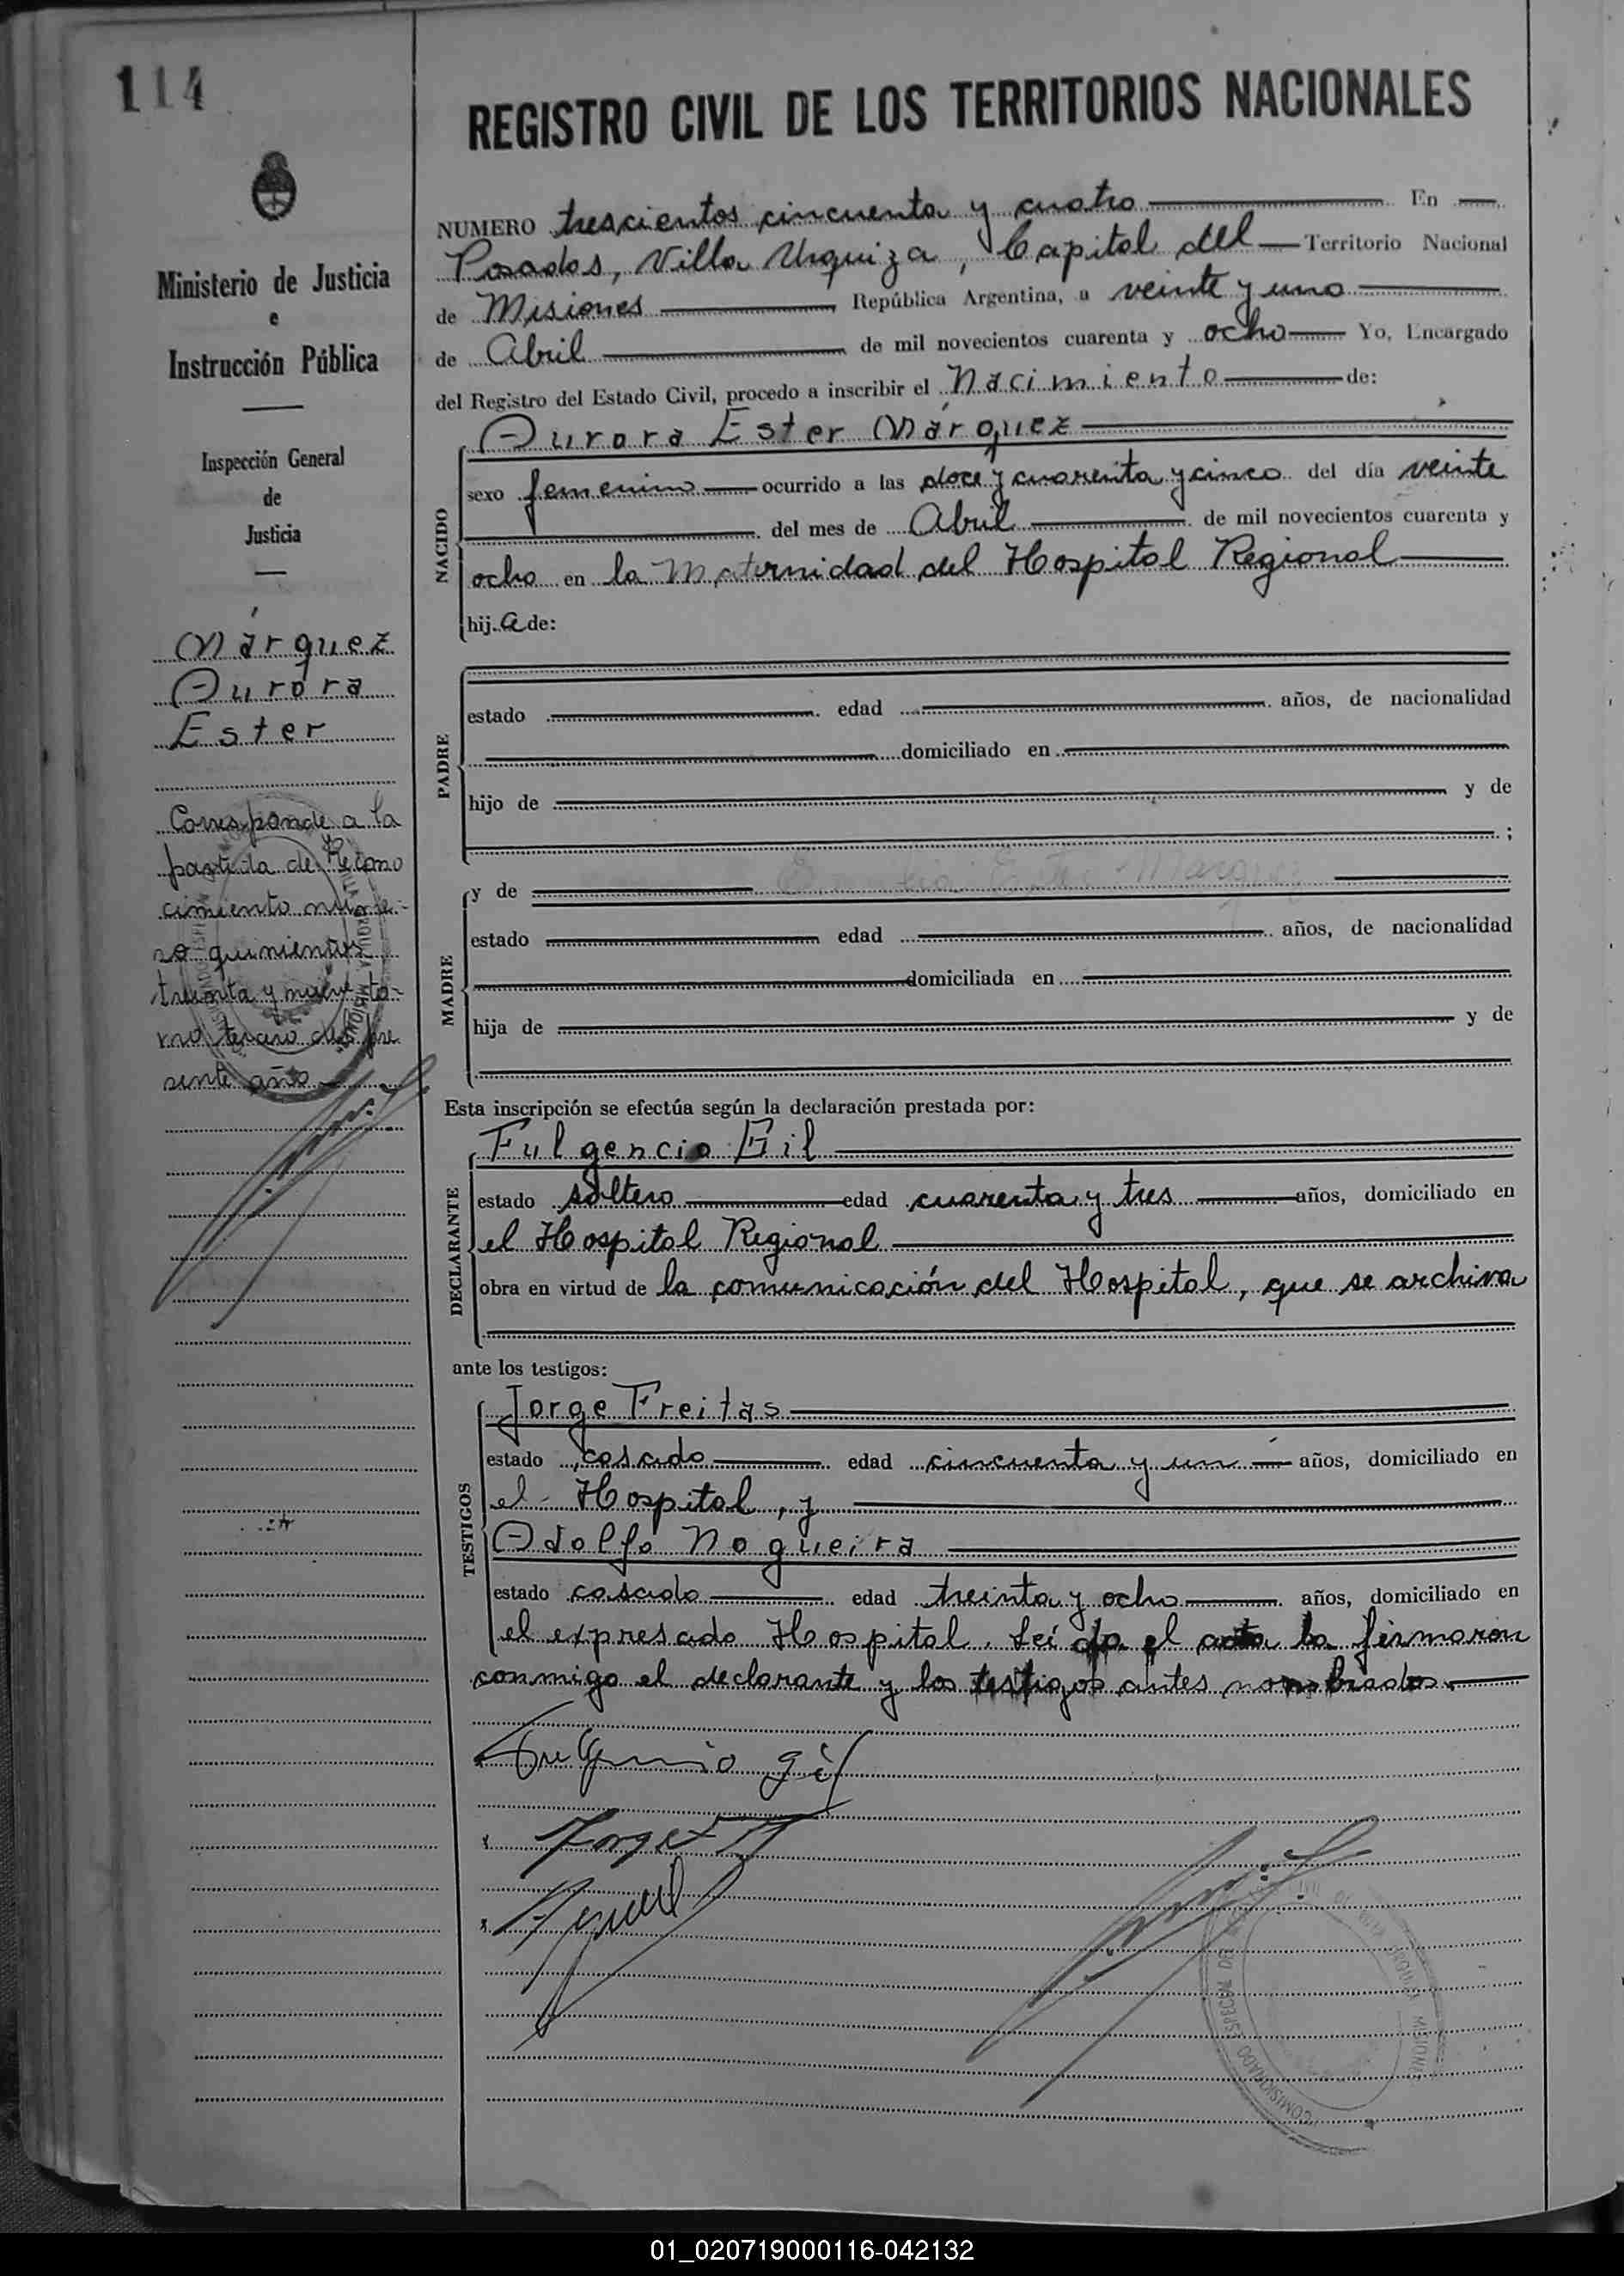 114
REGISTRO CIVIL DE LOS TERRITORIOS NACIONALES
Ministerio de Justicia
e
Instrucción Pública
Inspección General
de
Justicia
Márquez
Aurora
Ester
Corresponde a la
partida de Recono
cimiento núme-
ro quinientos
treinta y nueve to-
mo tercero del pre
sente año
NUMERO trescientos cincuenta y cuatro En
Posadas, Villa Urquiza, Capital del Territorio Nacional
de Misiones República Argentina, a veinte y uno
de Abril de mil novecientos cuarenta y ocho Yo, Encargado
del Registro del Estado Civil, procedo a inscribir el Nacimiento de:
NACIDO
Aurora Ester Márquez
sexo femenino ocurrido a las doce y cuarenta y cinco del día veinte
del mes de Abril de mil novecientos cuarenta y
ocho en la Maternidad del Hospital Regional
hija de:
PADRE
estado edad años, de nacionalidad
domiciliado en
hijo de y de
;
MADRE
y de Ester Marquez
estado edad años, de nacionalidad
domiciliada en
hija de y de
Esta inscripción se efectúa según la declaración prestada por:
DECLARANTE
Fulgencio Gil
estado soltero edad cuarenta y tres años, domiciliado en
el Hospital Regional
obra en virtud de la comunicación del Hospital, que se archiva
ante los testigos:
TESTIGOS
Jorge Freitas
estado casado edad cincuenta y un años, domiciliado en
el Hospital, y
Adolfo Nogueira
estado casado edad treinta y ocho años, domiciliado en
el expresado Hospital. Leída el acta la firmaron
conmigo el declarante y los testigos antes nombrados.
Fulgencio gil
Jorge
COMISIONADO ESPECIAL DE URQUIZA MISIONES
01_020719000116-042132